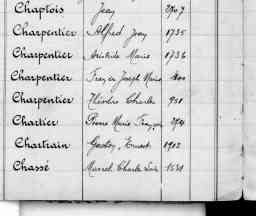 Chaptois Jean
Charpentier Alfred Jean 1735
Charpentier Aristide Marie 1736
Charpentier François Joseph Marie 800
Charpentier Théodore Charles 951
Chartier Pierre Marie François
Chartrain Gaston Ernest 1902
Chassé Marcel Charles Louis 1531